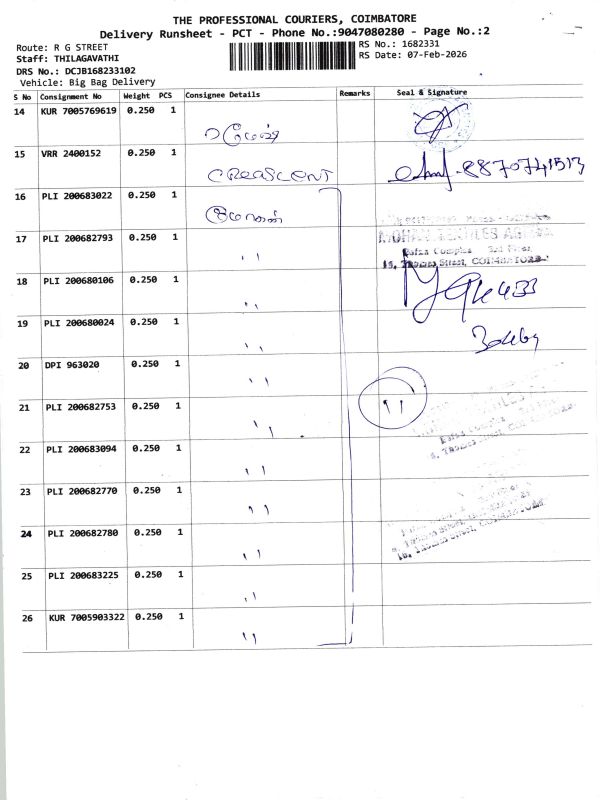 THE PROFESSIONAL COURIERS, COIMBATORE
Delivery Runsheet - PCT - Phone No.:9047080280 - Page No.:2
Route: R G STREET
RS No.: 1682331
Staff: THILAGAVATHI
RS Date: 07-Feb-2026
DRS No.: DCJB168233102
Vehicle: Big Bag Delivery
S No Consignment No Weight PCS Consignee Details Remarks Seal & Signature
14 KUR 7005769619 0.250 1
15 VRR 2400152 0.250 1 CREASCENT 8870741513
16 PLI 200683022 0.250 1
17 PLI 200682793 0.250 1 "
MOHAN TEXTILES
15, Thomas Street, COIMBATORE-
18 PLI 200680106 0.250 1 "
19 PLI 200680024 0.250 1 "
20 DPI 963020 0.250 1 "
21 PLI 200682753 0.250 1 " "
22 PLI 200683094 0.250 1 "
23 PLI 200682770 0.250 1 "
24 PLI 200682780 0.250 1 "
25 PLI 200683225 0.250 1 "
26 KUR 7005903322 0.250 1 "